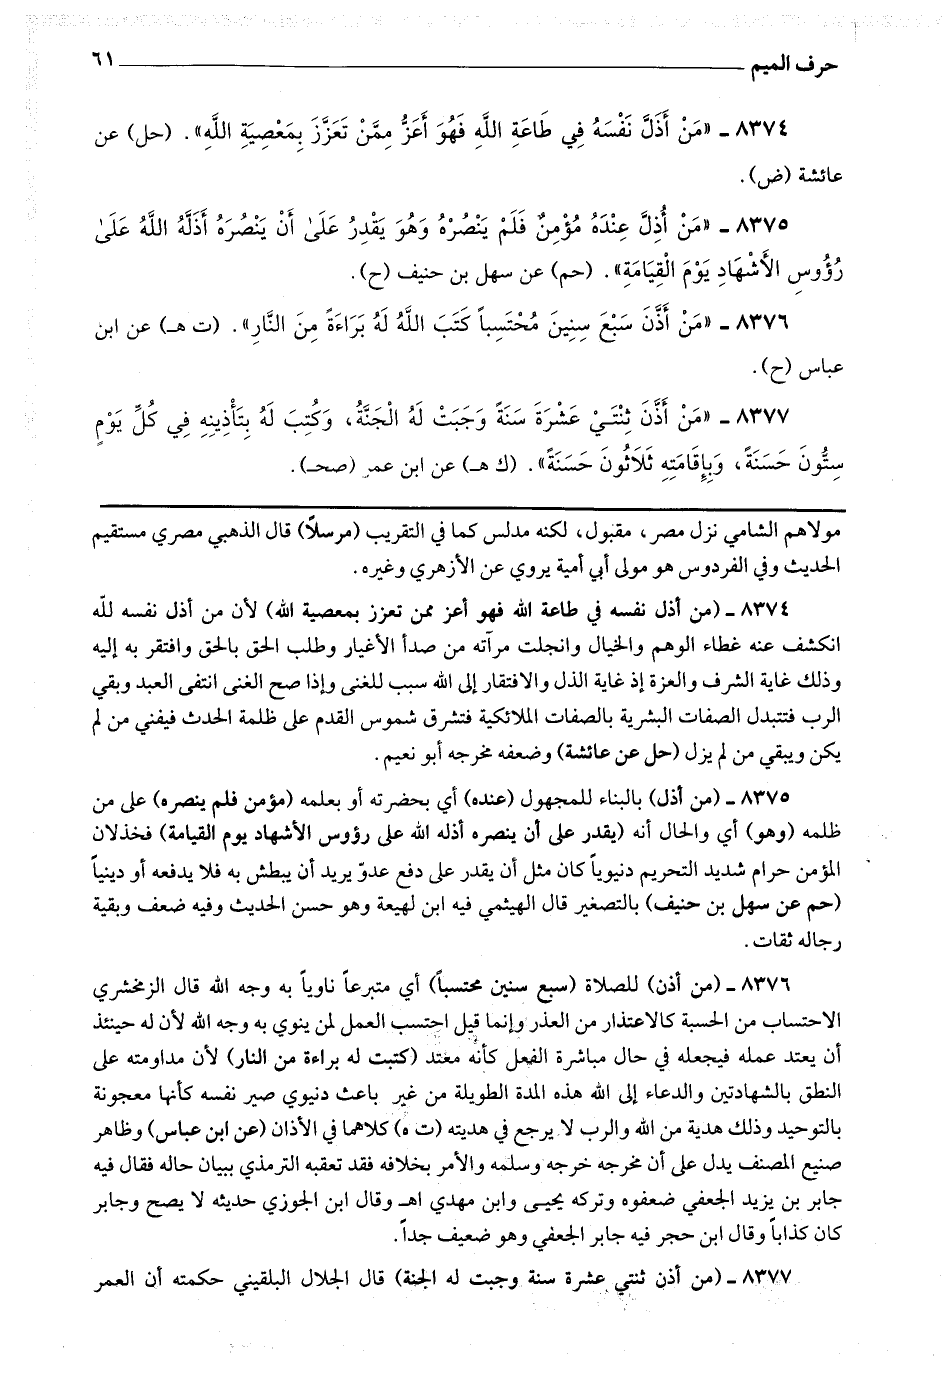 حرف الميم ٦١
٨٣٧٤ ـ «مَنْ أَذَلَّ نَفْسَهُ فِي طَاعَةِ اللَّهِ فَهُوَ أَعَزُّ مِمَّنْ تَعَزَّزَ بِمَعْصِيَةِ اللَّهِ». (حل) عن
عائشة (ض).
٨٣٧٥ ـ «مَنْ أُذِلَّ عِنْدَهُ مُؤْمِنٌ فَلَمْ يَنْصُرْهُ وَهُوَ يَقْدِرُ عَلَىٰ أَنْ يَنْصُرَهُ أَذَلَّهُ اللَّهُ عَلَىٰ
رُؤُوسِ الأَشْهَادِ يَوْمَ الْقِيَامَةِ». (حم) عن سهل بن حنيف (ح).
٨٣٧٦ ـ «مَنْ أَذَّنَ سَبْعَ سِنِينَ مُحْتَسِباً كَتَبَ اللَّهُ لَهُ بَرَاءَةً مِنَ النَّارِ». (ت هـ) عن ابن
عباس (ح).
٨٣٧٧ ـ «مَنْ أَذَّنَ ثِنْتَيْ عَشْرَةَ سَنَةً وَجَبَتْ لَهُ الْجَنَّةُ، وَكُتِبَ لَهُ بِتَأْذِينِهِ فِي كُلِّ يَوْمٍ
سِتُّونَ حَسَنَةً، وَبِإِقَامَتِهِ ثَلَاثُونَ حَسَنَةً». (ك هـ) عن ابن عمر (صحـ).
مولاهم الشامي نزل مصر، مقبول، لكنه مدلس كما في التقريب (مرسلاً) قال الذهبي مصري مستقيم
الحديث وفي الفردوس هو مولى أبي أمية يروي عن الأزهري وغيره.
٨٣٧٤ ـ (من أذل نفسه في طاعة الله فهو أعز ممن تعزز بمعصية الله) لأن من أذل نفسه للّه
انكشف عنه غطاء الوهم والخيال وانجلت مرآته من صدأ الأغيار وطلب الحق بالحق وافتقر به إليه
وذلك غاية الشرف والعزة إذ غاية الذل والافتقار إلى الله سبب للغنى وإذا صح الغنى انتفى العبد وبقي
الرب فتتبدل الصفات البشرية بالصفات الملائكية فتشرق شموس القدم على ظلمة الحدث فيفني من لم
يكن ويبقي من لم يزل (حل عن عائشة) وضعفه مخرجه أبو نعيم.
٨٣٧٥ ـ (من أذل) بالبناء للمجهول (عنده) أي بحضرته أو بعلمه (مؤمن فلم ينصره) على من
ظلمه (وهو) أي والحال أنه (يقدر على أن ينصره أذله الله على رؤوس الأشهاد يوم القيامة) فخذلان
المؤمن حرام شديد التحريم دنيوياً كان مثل أن يقدر على دفع عدوّ يريد أن يبطش به فلا يدفعه أو دينياً
(حم عن سهل بن حنيف) بالتصغير قال الهيثمي فيه ابن لهيعة وهو حسن الحديث وفيه ضعف وبقية
رجاله ثقات.
٨٣٧٦ ـ (من أذن) للصلاة (سبع سنين محتسباً) أي متبرعاً ناوياً به وجه الله قال الزمخشري
الاحتساب من الحسبة كالاعتذار من العذر وإنما قيل احتسب العمل لمن ينوي به وجه الله لأن له حينئذ
أن يعتد عمله فيجعله في حال مباشرة الفعل كأنه معتد (كتبت له براءة من النار) لأن مداومته على
النطق بالشهادتين والدعاء إلى الله هذه المدة الطويلة من غير باعث دنيوي صير نفسه كأنها معجونة
بالتوحيد وذلك هدية من الله والرب لا يرجع في هديته (ت ه) كلاهما في الأذان (عن ابن عباس) وظاهر
صنيع المصنف يدل على أن مخرجه خرجه وسلمه والأمر بخلافه فقد تعقبه الترمذي ببيان حاله فقال فيه
جابر بن يزيد الجعفي ضعفوه وتركه يحيـى وابن مهدي اهـ وقال ابن الجوزي حديثه لا يصح وجابر
كان كذاباً وقال ابن حجر فيه جابر الجعفي وهو ضعيف جداً.
٨٣٧٧ ـ (من أذن ثنتي عشرة سنة وجبت له الجنة) قال الجلال البلقيني حكمته أن العمر